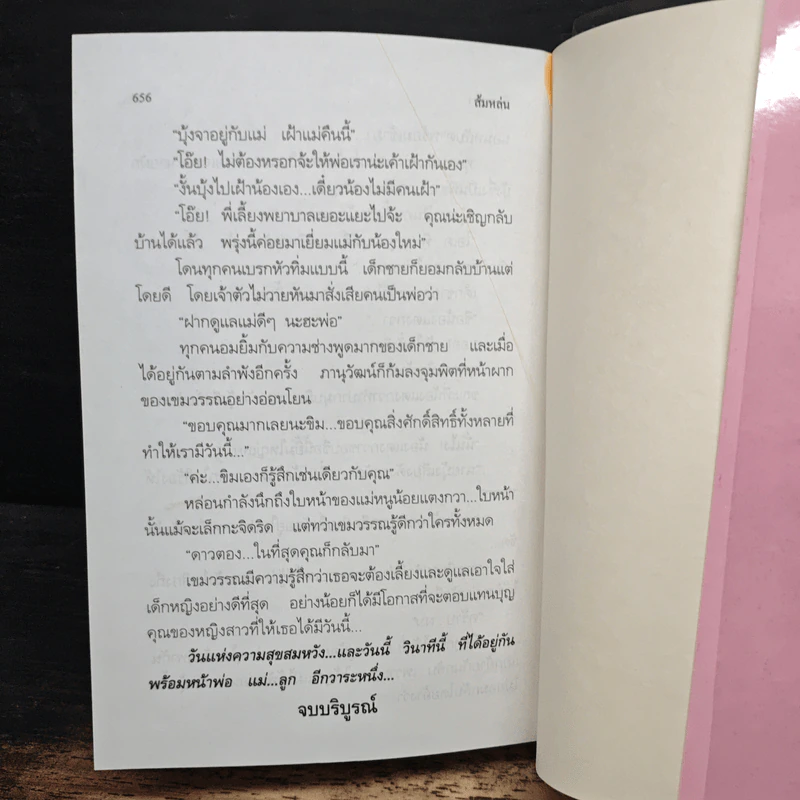 656
ส้มหล่น
“บุ้งจาอยู่กับแม่ เฝ้าแม่คืนนี้”
“โอ๊ย! ไม่ต้องหรอกจ้ะให้พ่อเราน่ะเค้าเฝ้ากันเอง”
“งั้นบุ้งไปเฝ้าน้องเอง...เดี๋ยวน้องไม่มีคนเฝ้า”
“โอ๊ย! พี่เลี้ยงพยาบาลเยอะแยะไปจ้ะ คุณน่ะเชิญกลับ
บ้านได้แล้ว พรุ่งนี้ค่อยมาเยี่ยมแม่กับน้องใหม่”
โดนทุกคนเบรกหัวทิ่มแบบนี้ เด็กชายก็ยอมกลับบ้านแต่
โดยดี โดยเจ้าตัวไม่วายหันมาสั่งเสียคนเป็นพ่อว่า
“ฝากดูแลแม่ดีๆ นะฮะพ่อ”
ทุกคนอมยิ้มกับความช่างพูดมากของเด็กชาย และเมื่อ
ได้อยู่กันตามลำพังอีกครั้ง ภานุวัฒน์ก็ก้มลงจุมพิตที่หน้าผาก
ของเขมวรรณอย่างอ่อนโยน
“ขอบคุณมากเลยนะขิม...ขอบคุณสิ่งศักดิ์สิทธิ์ทั้งหลายที่
ทำให้เรามีวันนี้...”
“ค่ะ...ขิมเองก็รู้สึกเช่นเดียวกับคุณ”
หล่อนกำลังนึกถึงใบหน้าของแม่หนูน้อยแตงกวา...ใบหน้า
นั้นแม้จะเล็กกะจิดริด แต่ทว่าเขมวรรณรู้ดีกว่าใครทั้งหมด
“ดาวตอง...ในที่สุดคุณก็กลับมา”
เขมวรรณมีความรู้สึกว่าเธอจะต้องเลี้ยงและดูแลเอาใจใส่
เด็กหญิงอย่างดีที่สุด อย่างน้อยก็ได้มีโอกาสที่จะตอบแทนบุญ
คุณของหญิงสาวที่ให้เธอได้มีวันนี้...
วันแห่งความสุขสมหวัง...และวันนี้ วินาทีนี้ ที่ได้อยู่กัน
พร้อมหน้าพ่อ แม่...ลูก อีกวาระหนึ่ง...
จบบริบูรณ์